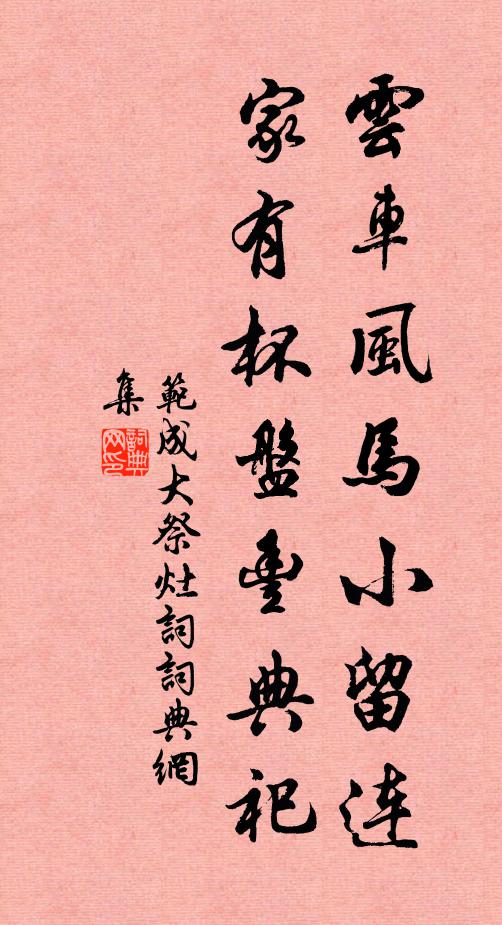 雲車風馬小留連
家有杯盤豊典祀
範成大祭灶詞詞典網
集
詞典
网印